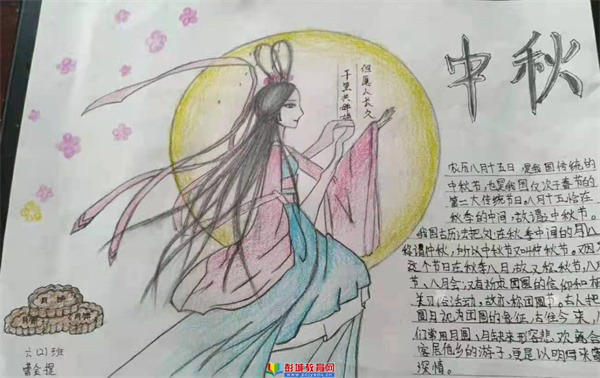 中秋
但愿人长久
千里共婵娟
农历八月十五日 是我国传统的
中秋节,也是我国仅次于春节的
第二大传统节日。八月十五恰在
秋季的中间,故谓之中秋节。
我国古历法把处在秋季中间的八月
称谓仲秋,所以中秋节又叫仲秋节。又因为
这个节日在秋季八月,故又称秋节,八月
节、八月会,又有祈求团圆的信仰和相
关习俗活动,故亦称团圆节。古人把
圆月视为团圆的象征,古往今来,人
们常用月圆、月缺来形容悲、欢、离合
客居他乡的游子,更是以明月来寄
深情。
月饼
月饼
六(2)班
彭城教育网